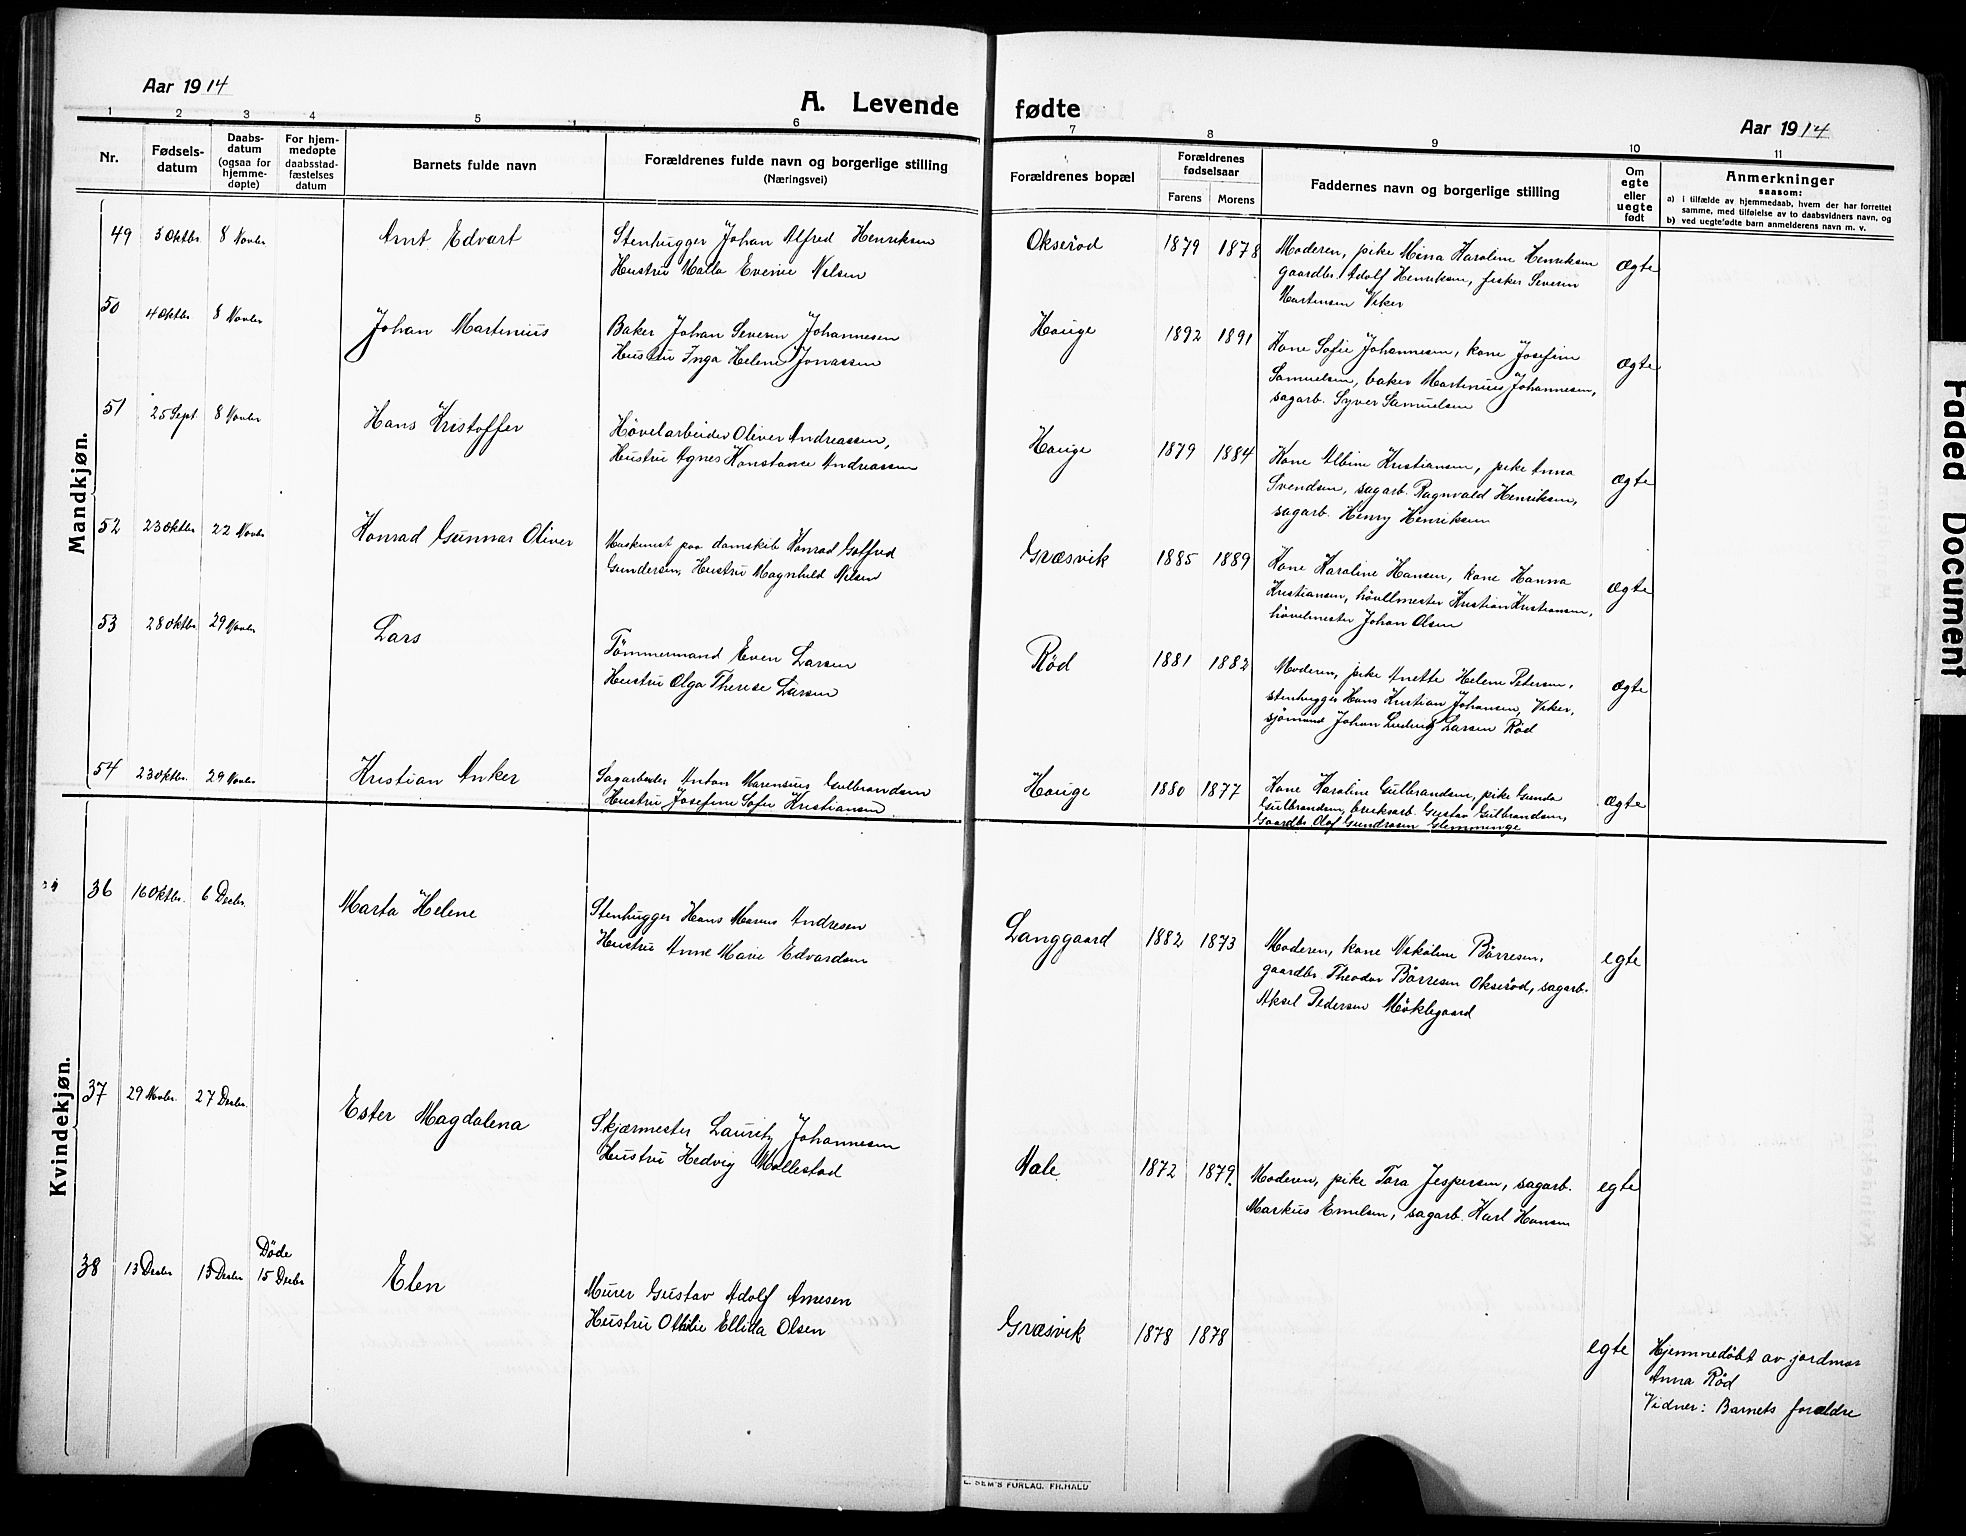 Aar 1914
A. Levende fødte
Aar 1914
1 2 3 4 5 6 7 8 9 10 11
Nr.
Fødsels-
datum
Daabs-
datum
(ogsaa for
hjemme-
døpte)
For hjem-
medøpte
daabsstad-
fæstelses
datum
Barnets fulde navn
Forældrenes fulde navn og borgerlige stilling
(Næringsvei)
Forældrenes bopæl
Forældrenes
fødselsaar
Farens Morens
Faddernes navn og borgerlige stilling
Om
egte
eller
uegte
født
Anmerkninger
saasom:
a) i tilfælde av hjemmedaab, hvem der har forrettet
samme, med tilføielse av to daabsvidners navn, og
b) ved uegtefødte barn anmelderens navn m. v.
Mandkjøn.
49 3 Oktbr 8 Novbr Arnt Edvart
Stenhugger Johan Alfred Henriksen
Hustru Malla Evenie Nilsen
Okserød 1879 1878
Moderen, pike Mina Karoline Henriksen
gaardbr. Adolf Henriksen, fisker Severin
Martinsen Viker
ægte
50 4 Oktbr 8 Novbr Johan Martinius
Baker Johan Severin Johannesen
Hustru Inga Helene Jonassen
Hauge 1892 1891
Kone Sofie Johannesen, kone Josefine
Samuelsen, baker Martinius Johannesen,
sagarb. Syver Samuelsen
ægte
51 25 Sept. 8 Novbr Hans Kristoffer
Høvelarbeider Oliver Andreassen,
Hustru Agnes Konstance Andreassen
Hauge 1879 1884
Kone Albine Kristiansen, pike Anna
Svendsen, sagarb. Ragnvald Henriksen,
sagarb. Henry Henriksen
ægte
52 23 Oktbr 22 Novbr Konrad Gunnar Oliver
Maskinist paa damskib Konrad Gotfred
Gundersen, Hustru Magnhild Nilsen
Græsvik 1885 1889
Kone Karoline Hansen, kone Hanna
Kristiansen, høvllmester Kristian Kristiansen,
høvelmester Johan Olsen
ægte
53 28 Oktbr 29 Novbr Lars
Tømmermand Even Larsen
Hustru Olga Therese Larsen
Rød 1881 1882
Moderen, pike Anette Helene Petersen,
stenhugger Hans Kristian Johansen, Viker,
sjømand Johan Ludvig Larsen Rød
ægte
54 23 Oktbr. 29 Novbr Kristian Anker
Sagarbeider Anton Marensius Gulbrandsen
Hustru Josefine Sofie Kristiansen
Hauge 1880 1877
Kone Karoline Gulbrandsen, pike Gunda
Gulbrandsen, bruksarb. Gustav Gulbrandsen,
Gaardbr. Olaf Glemminge
ægte
Kvindekjøn.
36 16 Oktbr. 6 Decbr. Marta Helene
Stenhugger Hans Marius Andresen
Hustru Anne Marie Edvardsen
Langgaard 1882 1873
Moderen, kone Nikoline Børresen,
gaardbr Theodor Børresen Okserød, sagarb.
Aksel Pedersen Møklegaard
egte
37 29 Novbr. 27 Decbr. Ester Magdalena
Skjærmester Lauritz Johannesen
Hustru Hedvig Mollestad
Dale 1872 1879.
Moderen, pike Tora Jespersen, sagarb.
Markus Emelsen, sagarb. Karl Hansen
egte
38 13 Decbr 13 Decbr Døde
15 Decbr
Elen
Murer Gustav Adolf Arnesen
Hustru Othilie Ellida Olsen
Græsvik 1878 1878
egte
Hjemmedøbt av jordmor
Anna Rød
Vidner: Barnets forældre
E. SEM'S FORLAG. FR.HALD
Faded Document